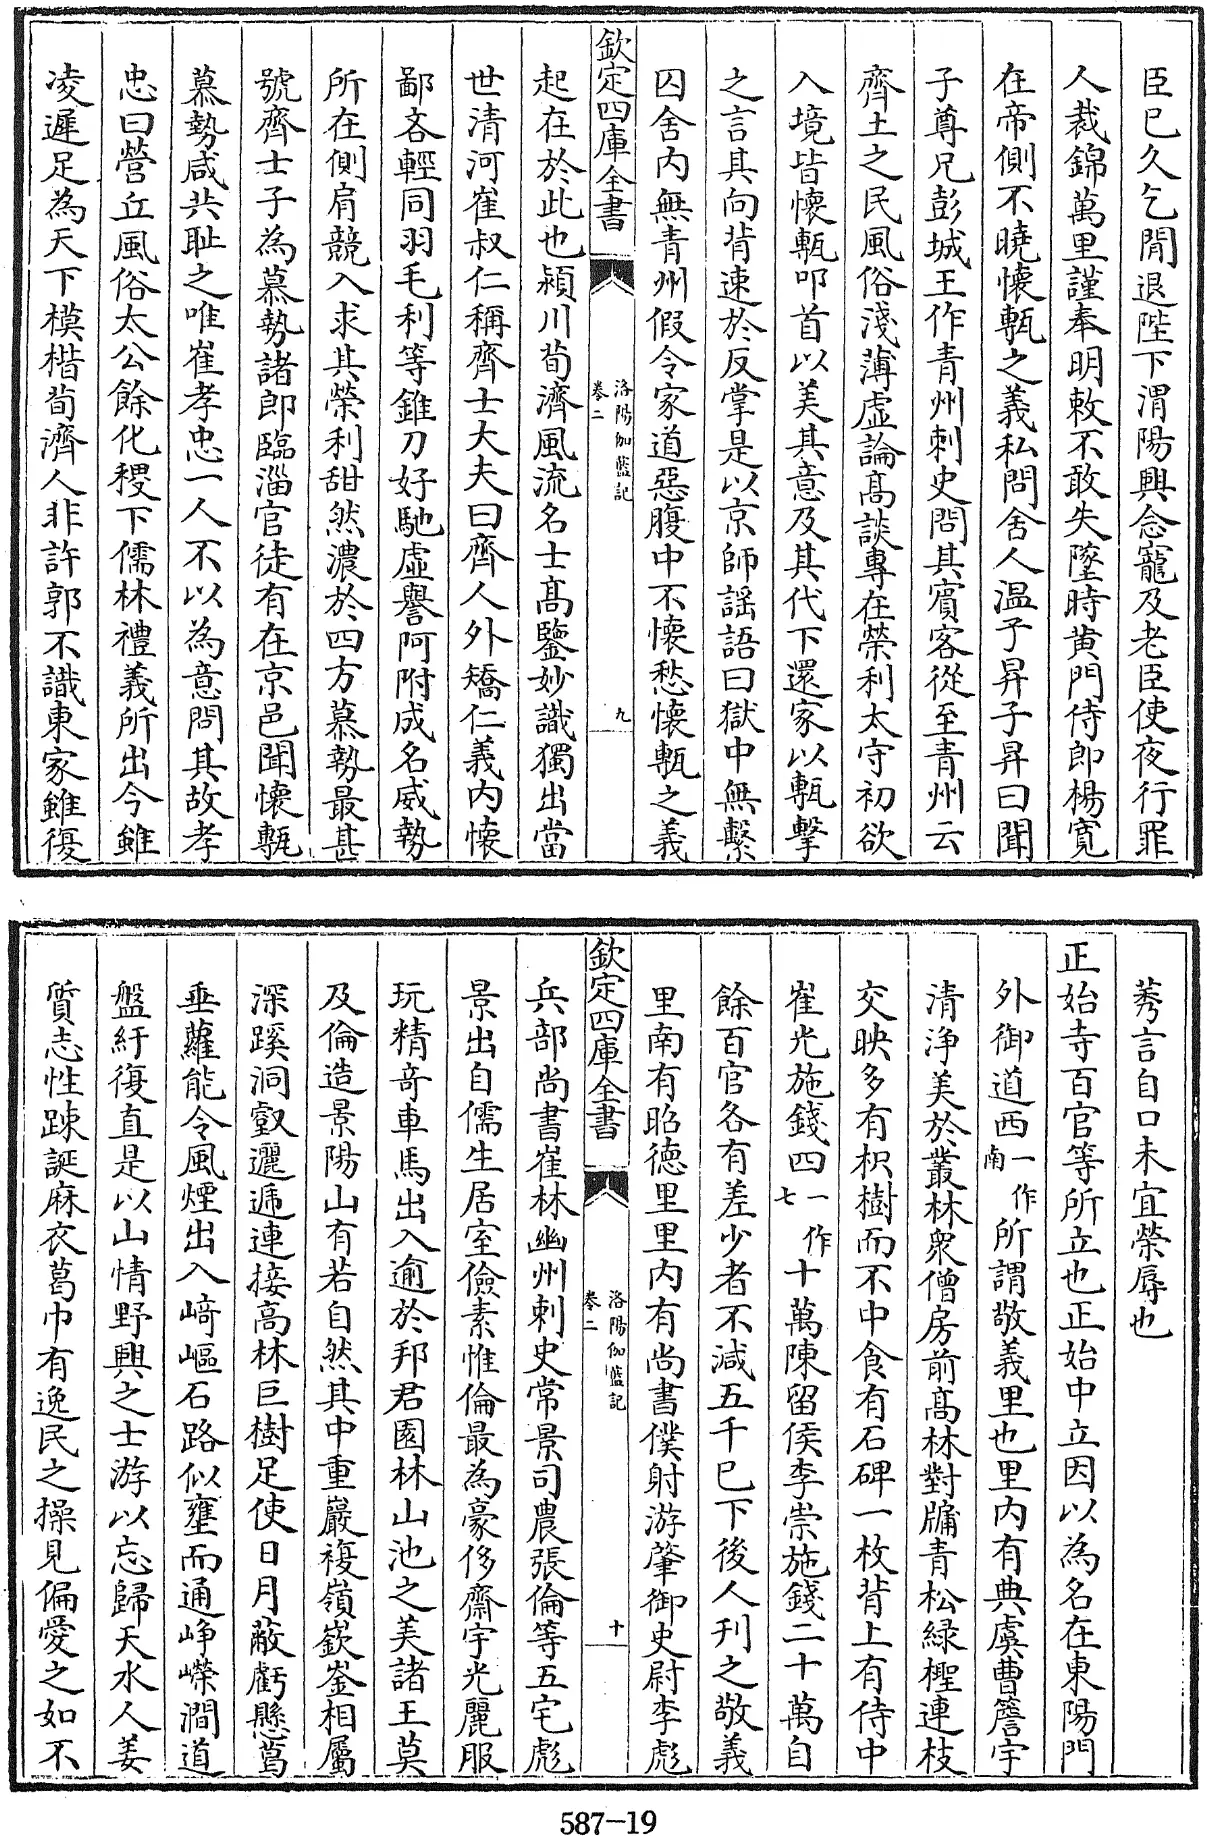 臣已久乞閒退陛下渭陽興念寵及老臣使夜行罪
人裁錦萬里謹奉明敕不敢失墜時黄門侍郎楊寛
在帝側不曉懷甎之義私問舍人温子昇子昇曰聞
子尊兄彭城王作青州刺史問其賓客從至青州云
齊土之民風俗淺薄虚論髙談專在榮利太守初欲
入境皆懷甎叩首以美其意及其代下還家以甎擊
之言其向背速於反掌是以京師謡語曰獄中無繫
囚舍内無青州假令家道惡腹中不懷愁懷甎之義
欽定四庫全書
洛陽伽藍記
卷二
九
起在於此也潁川荀濟風流名士髙鑒妙識獨出當
世清河崔叔仁稱齊士大夫曰齊人外矯仁義内懷
鄙吝輕同羽毛利等錐刀好馳虚譽阿附成名威勢
所在側肩競入求其榮利甜然濃於四方慕勢最甚
號齊士子為慕勢諸郎臨淄官徒有在京邑聞懷甎
慕勢咸共耻之唯崔孝忠一人不以為意問其故孝
忠曰營丘風俗太公餘化稷下儒林禮義所出今雖
凌遲足為天下模楷荀濟人非許郭不識東家雖復
莠言自口未宜榮辱也
正始寺百官等所立也正始中立因以為名在東陽門
外御道西一作南所謂敬義里也里内有典虞曹簷宇
清浄美於叢林衆僧房前髙林對牖青松緑檉連枝
交映多有枳樹而不中食有石碑一枚背上有侍中
崔光施錢四一作七十萬陳留侯李崇施錢二十萬自
餘百官各有差少者不減五千已下後人刊之敬義
里南有昭德里里内有尚書僕射游肇御史尉李彪
欽定四庫全書
洛陽伽藍記
卷二
十
兵部尚書崔林幽州刺史常景司農張倫等五宅彪
景出自儒生居室儉素惟倫最為豪侈齋宇光麗服
玩精奇車馬出入逾於邦君園林山池之美諸王莫
及倫造景陽山有若自然其中重巖複嶺嶔崟相屬
深蹊洞壑邐遞連接高林巨樹足使日月蔽虧懸葛
垂蘿能令風煙出入﨑嶇石路似壅而通峥嶸澗道
盤紆復直是以山情野興之士游以忘歸天水人姜
質志性踈誕麻衣葛巾有逸民之操見偏愛之如不
587-19